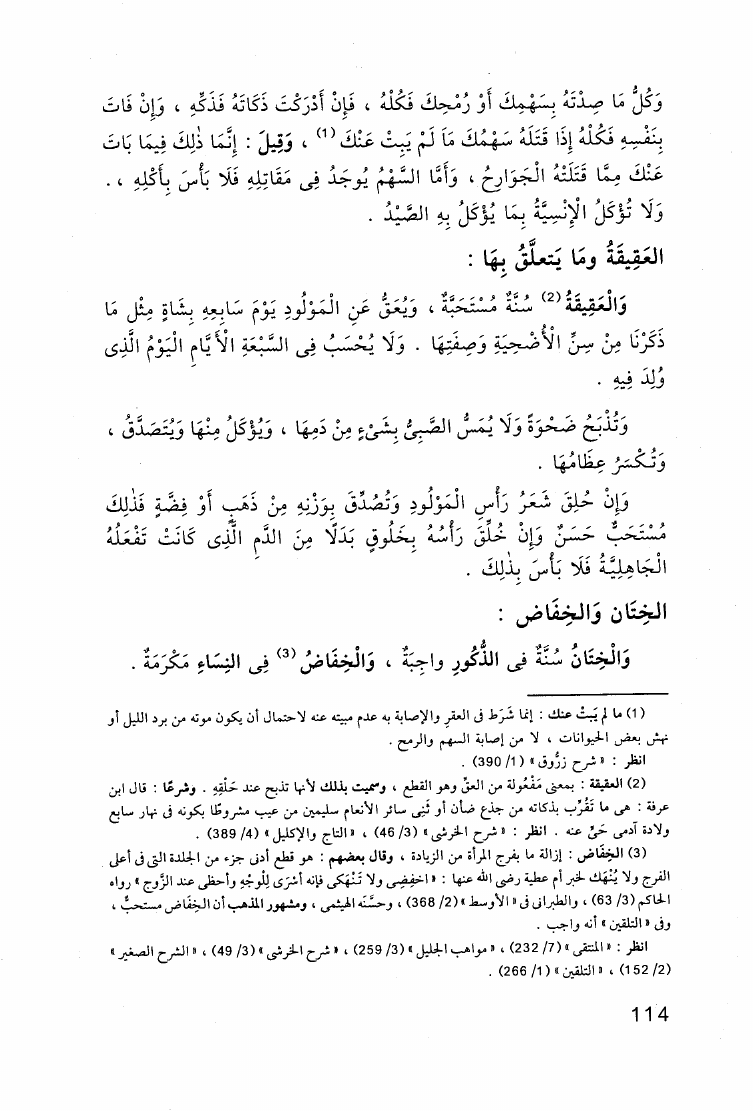 وَكُلُّ مَا صِدْتَهُ بِسَهْمِكَ أَوْ رُمْحِكَ فَكُلْهُ ، فَإِنْ أَدْرَكْتَ ذَكَاتَهُ فَذَكِّهِ ، وَإِنْ فَاتَ
بِنَفْسِهِ فَكُلْهُ إِذَا قَتَلَهُ سَهْمُكَ مَا لَمْ يَبِتْ عَنْكَ (1) ، وَقِيلَ : إِنَّمَا ذٰلِكَ فِيمَا بَاتَ
عَنْكَ مِمَّا قَتَلَتْهُ الْجَوَارِحُ ، وَأَمَّا السَّهْمُ يُوجَدُ فِى مَقَاتِلِهِ فَلَا بَأْسَ بِأَكْلِهِ ، .
وَلَا تُؤْكَلُ الْإِنْسِيَّةُ بِمَا يُؤْكَلُ بِهِ الصَّيْدُ .
العَقِيقَةُ ومَا يَتعلَّقُ بِهَا :
وَالْعَقِيقَةُ (2) سُنَّةٌ مُسْتَحَبَّةٌ ، وَيُعَقُّ عَنِ الْمَوْلُودِ يَوْمَ سَابِعِهِ بِشَاةٍ مِثْلِ مَا
ذَكَرْنَا مِنْ سِنِّ الْأُضْحِيَةِ وَصِفَتِهَا . وَلَا يُحْسَبُ فِى السَّبْعَةِ الْأَيَّامِ الْيَوْمُ الَّذِى
وُلِدَ فِيهِ .
وَتُذْبَحُ ضَحْوَةً وَلَا يُمَسُّ الصَّبِىُّ بِشَىْءٍ مِنْ دَمِهَا ، وَيُؤْكَلُ مِنْهَا وَيُتَصَدَّقُ ،
وَتُكْسَرُ عِظَامُهَا .
وَإِنْ حُلِقَ شَعَرُ رَأْسِ الْمَوْلُودِ وَتُصُدِّقَ بِوَزْنِهِ مِنْ ذَهَبٍ أَوْ فِضَّةٍ فَذٰلِكَ
مُسْتَحَبٌّ حَسَنٌ وَإِنْ خُلِّقَ رَأْسُهُ بِخَلُوقٍ بَدَلًا مِنَ الدَّمِ الَّذِى كَانَتْ تَفْعَلُهُ
الْجَاهِلِيَّةُ فَلَا بَأْسَ بِذٰلِكَ .
الخِتَان وَالخِفَاض :
وَالْخِتَانُ سُنَّةٌ فِى الذُّكُورِ واجِبَةٌ ، وَالْخِفَاضُ (3) فِى النِسَاءِ مَكْرَمَةٌ .
(1) ما لم يَبتْ عنك : إنما شَرَط فى العقر والإصابة به عدم مبيته عنه لاحتمال أن يكون موته من برد الليل أو
نهش بعض الحيوانات ، لا من إصابة السهم والرمح .
انظر : « شرح زرُّوق » (1/ 390) .
(2) العقيقة : بمعنى مَفْعُولة من العقِّ وهو القطع ، وسميت بذلك لأنها تذبح عند حَلْقِهِ . وشرعًا : قال ابن
عرفة : هى ما تَقُرِّب بذكاته من جذع ضأن أو ثَنِى سائر الأنعام سليمين من عيب مشروطًا بكونه فى نهار سابع
ولادة آدمى حىٍّ عنه . انظر : « شرح الخرشى » (3/ 46) ، « التاج والإكليل » (4/ 389) .
(3) الخِفَاض : إزالة ما بفرج المرأة من الزيادة ، وقال بعضهم : هو قطع أدنى جزء من الجلدة التى فى أعلى
الفرج ولا يُنْهَك لخبر أم عطية رضى الله عنها : « اخفِضى ولا تَنْهَكى فإنه أسْرَى لِلْوجْهِ وأحظى عند الزَّوج » رواه
الحاكم (3/ 63) ، والطبرانى فى « الأوسط » (2/ 368) ، وحسَّنَه الهيثمى ، ومشهور المذهب أن الخِفَاض مستحبٌّ ،
وفى « التلقين » أنه واجب .
انظر : « المنتقى » (7/ 232) ، « مواهب الجليل » (3/ 259) ، « شرح الخرشى » (3/ 49) ، « الشرح الصغير »
(2/ 152) ، « التلقين » (1/ 266) .
114